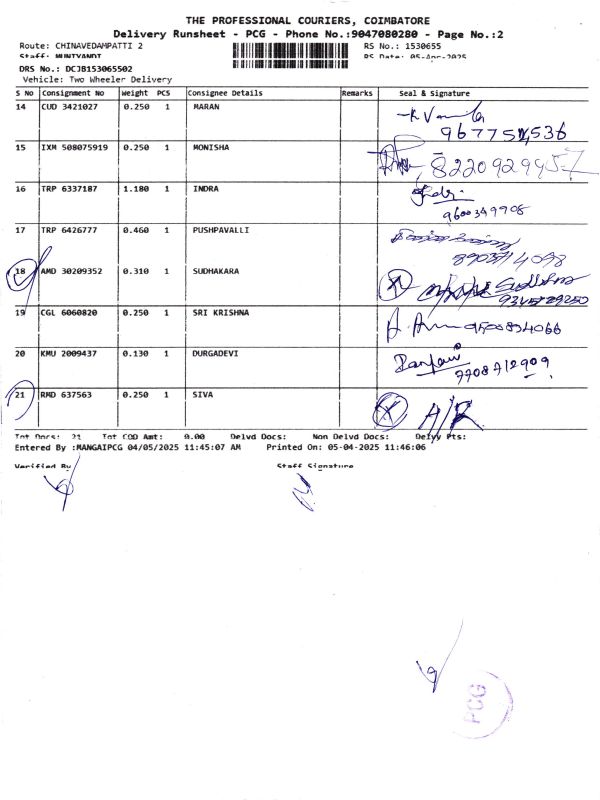 THE PROFESSIONAL COURIERS, COIMBATORE
Delivery Runsheet - PCG - Phone No.:9047080280 - Page No.:2
Route: CHINAVEDAMPATTI 2 RS No.: 1530655
Staff: MUNIYANDI RS Date: 05-Apr-2025
DRS No.: DCJB153065502
Vehicle: Two Wheeler Delivery
S No Consignment No Weight PCS Consignee Details Remarks Seal & Signature
14 CUD 3421027 0.250 1 MARAN
15 IXM 508075919 0.250 1 MONISHA
16 TRP 6337187 1.180 1 INDRA
9600349908
17 TRP 6426777 0.460 1 PUSHPAVALLI
18 AMD 30209352 0.310 1 SUDHAKARA
19 CGL 6060820 0.250 1 SRI KRISHNA
20 KMU 2009437 0.130 1 DURGADEVI
7708712909
21 RMD 637563 0.250 1 SIVA A/R
Tot Docs: 21 Tot COD Amt: 0.00 Delvd Docs: Non Delvd Docs: Delvy Pts:
Entered By :MANGAIPCG 04/05/2025 11:45:07 AM Printed On: 05-04-2025 11:46:06
Verified By Staff Signature
PCG